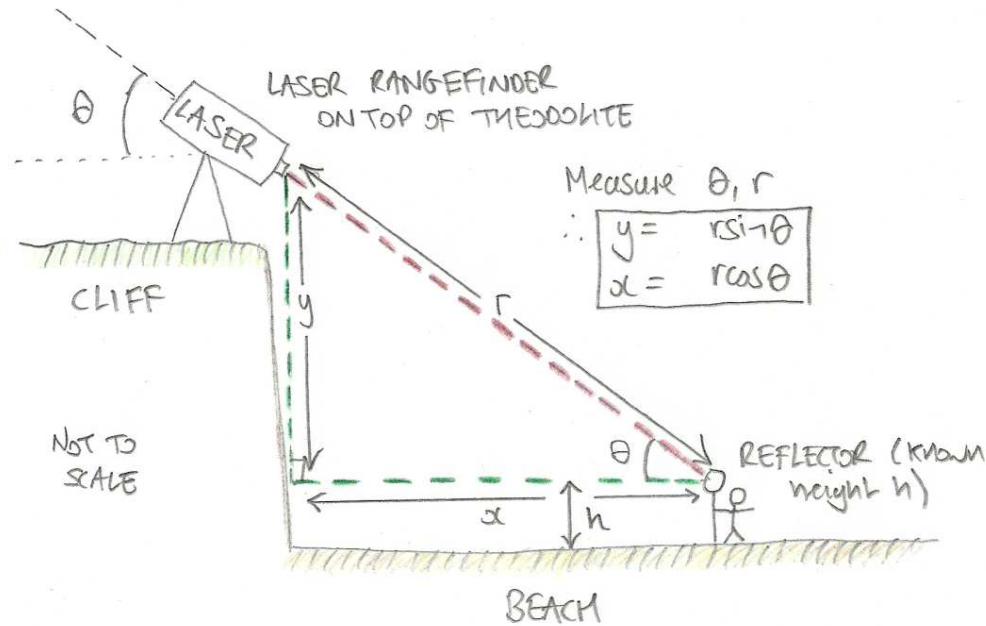 θ
LASER
LASER RANGEFINDER
ON TOP OF THEODOLITE
Measure θ, r
∴ y = rsinθ
x = rcosθ
CLIFF
y
r
NOT TO
SCALE
θ
REFLECTOR (known
height h)
x
h
BEACH